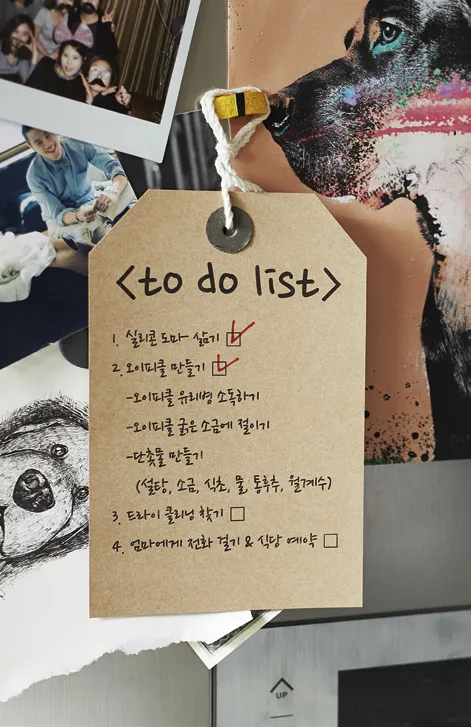 <to do list>
1. 실리콘 도마 삶기
2. 오이피클 만들기
-오이피클 유리병 소독하기
-오이피클 굵은 소금에 절이기
-단촛물 만들기
(설탕, 소금, 식초, 물, 통후추, 월계수)
3. 드라이 클리닝 찾기
4. 엄마에게 전화 걸기 & 식당 예약
UP